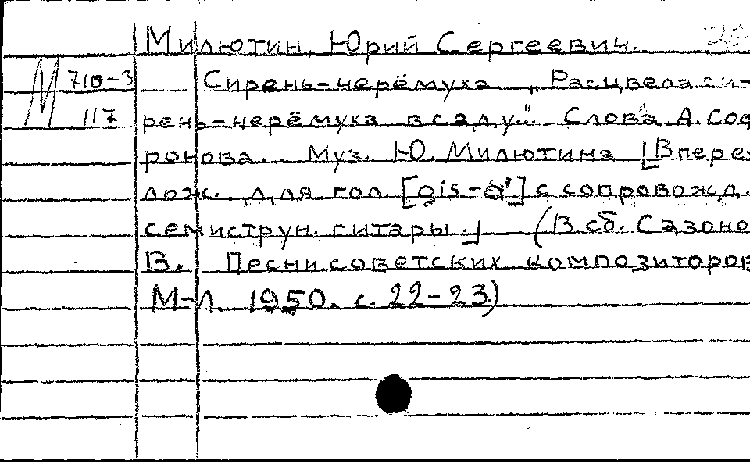 Милютин, Юрий Сергеевич.
М 710-3 Сирень-черёмуха „Расцвела си-
117 рень-черёмуха в саду". Слова А. Соф
ронова. Муз. Ю. Милютина [В пере
лож. для гол [gis-a'] с сопровожд.
семиструн. гитары.] (В сб. Сазоно
В. Песни советских композиторов
М-Л. 1950. с. 22-23)